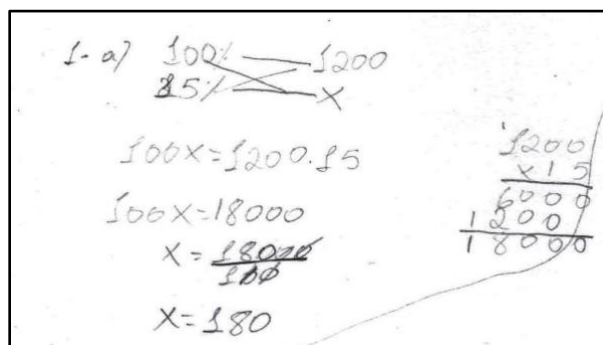 1- a) 100% 1200
15% X
100X = 1200.15
100X = 18000
X = 18000
100
X = 180
1200
x 15
6000
1200
18000